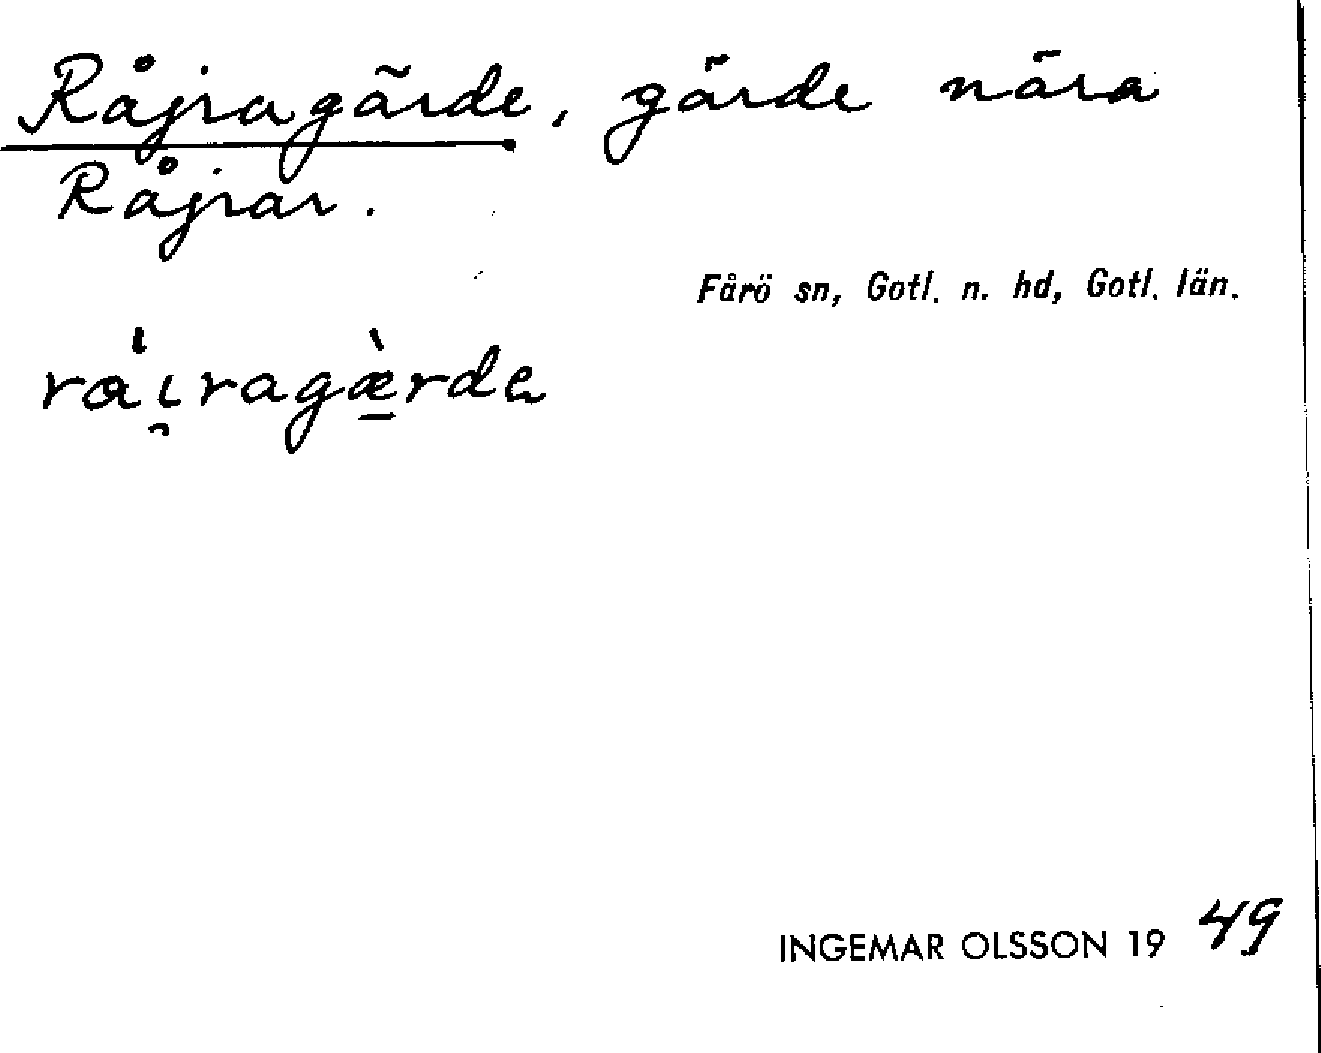 Råjragärde, gärde nära
Råjrar.
Fårö sn, Gotl. n. hd, Gotl. län.
INGEMAR OLSSON 1949